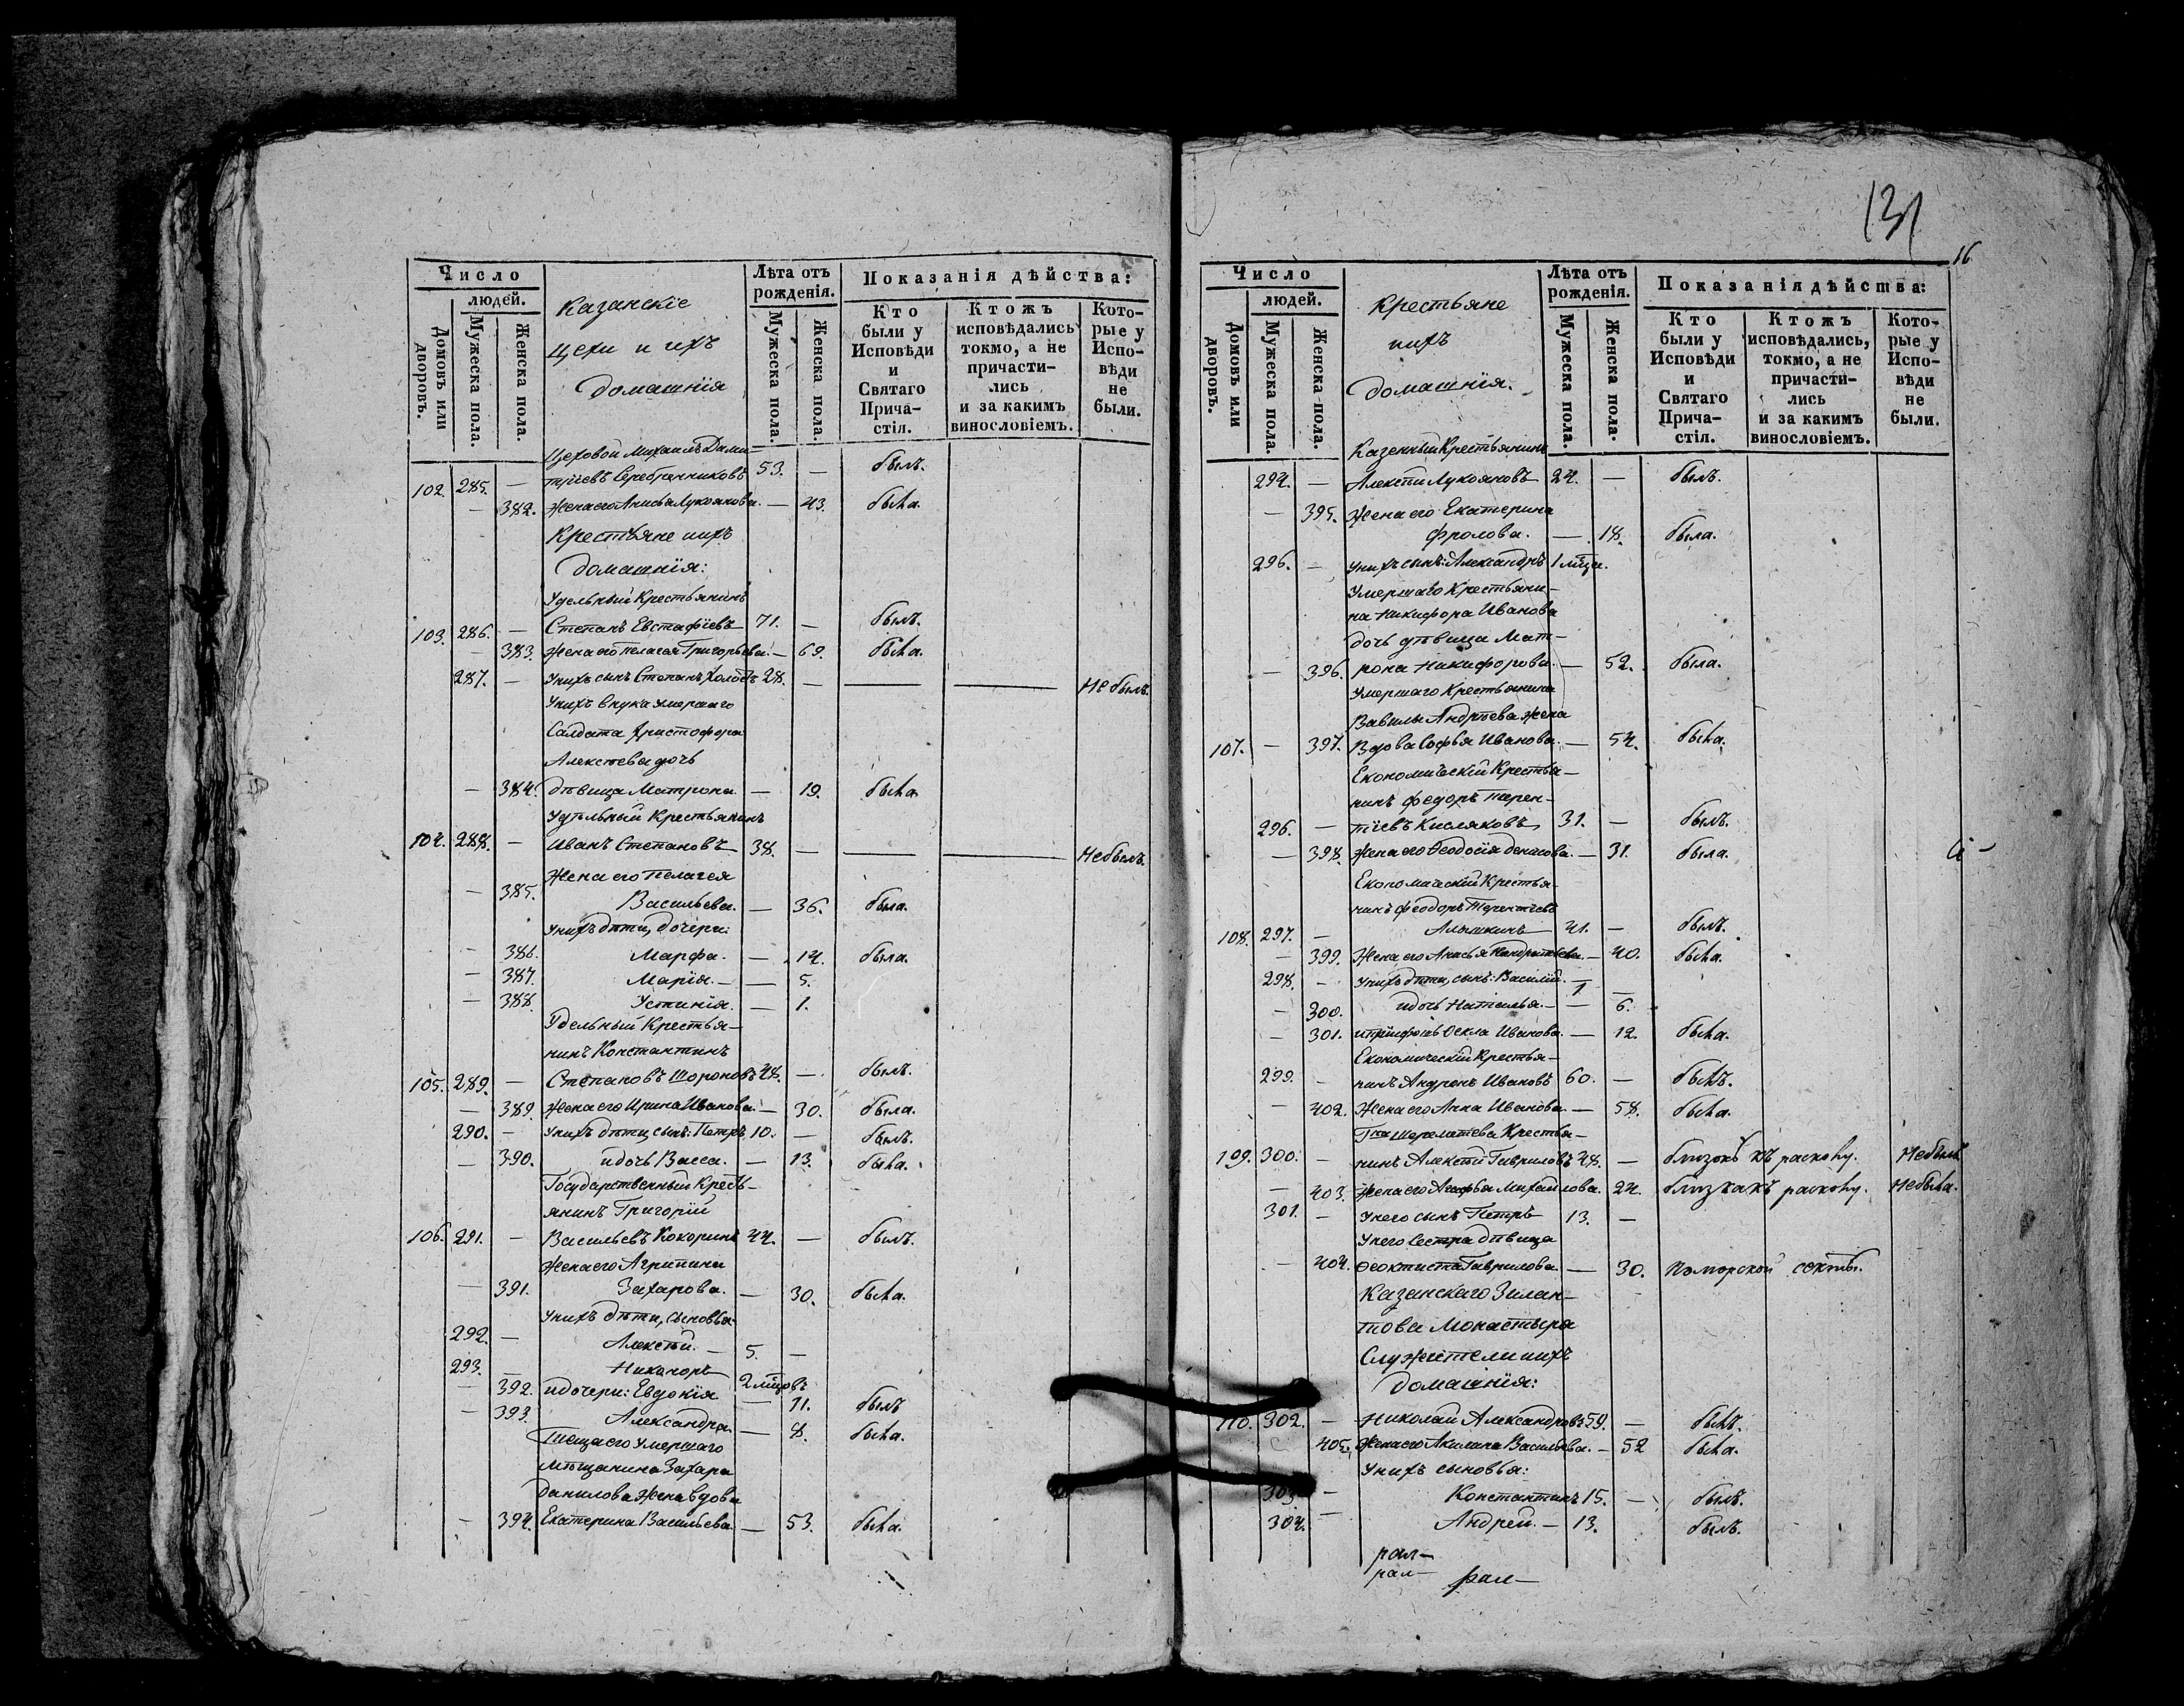 131
16
Число
людей.
Домовъ или дворовъ.
Мужеска пола.
Женска пола.
Казанскіе
Цехи и ихъ
домашнія
Лѣта отъ рожденія.
Мужеска пола.
Женска пола.
Показанія дѣйства:
Кто были у Исповѣди и Святаго Прича- стія.
Ктожъ исповѣдались токмо, а не причасти- лись и за какимъ винословіемъ.
Кото- рые у Испо- вѣди не были.
Цеховой Михаилъ Дами-
102. 285. — тріевъ Серебренниковъ 53. — былъ.
— 382. Жена его Анисья Лукоянова. — 43. была.
Крестьяне и ихъ
домашнія:
Удельный Крестьянинъ
103. 286. — Степанъ Евстафіевъ 71. — былъ.
— 383. Жена его Пелагея Григорьева. — 69. была.
287. — У нихъ сынъ Степанъ холостъ 28. — — — Не былъ.
У нихъ внука умершаго
Солдата Христофора
Алексѣева дочь
— 384. дѣвица Матрона. — 19. была.
Удѣльный Крестьянинъ
104. 288. — Иванъ Степановъ 38. — — — Не былъ.
Жена его Пелагея
— 385. Васильева. — 36. была.
У нихъ дѣти, дочери:
— 386. Марфа. — 14. была.
— 387. Марія. — 5.
— 388. Устинія. — 1.
Удельный Крестья-
нинъ Константинъ
105. 289. — Степановъ Шороновъ 48. — былъ.
— 389. Жена его Ирина Иванова. — 30. была.
290. — У нихъ дѣти, сынъ: Петръ 10. — былъ.
— 390. и дочь Васса. — 13. была.
Государственный Кресть-
янинъ Григорій
106. 291. — Васильевъ Кокоринъ 44. — былъ.
Жена его Агрипина
— 391. Захарова. — 30. была.
У нихъ дѣти, сыновья:
292. — Алексѣй. — 5. —
293. — Никаноръ 2 мѣсцовъ
— 392. и дочери: Евдокія — 11. былъ
— 393. Александра. — 8. была.
Теща его умершаго
мѣщанина Захара
Данилова Жена вдова
— 394. Екатерина Васильева. — 53. была.
Число
людей.
Домовъ или дворовъ.
Мужеска пола.
Женска пола.
Крестьяне
и ихъ
домашнія.
Лѣта отъ рожденія.
Мужеска пола.
Женска пола.
Показанія дѣйства:
Кто были у Исповѣди и Святаго Прича- стія.
Ктожъ исповѣдались, токмо, а не причасти- лись и за какимъ винословіемъ.
Кото- рые у Испо- вѣди не были.
Казенный Крестьянинъ
294. — Алексѣй Лукояновъ 24. — былъ.
— 395. Жена его Екатерина
Фролова. — 18. была.
296. — У нихъ сынъ: Александръ 1 мѣсца.
Умершаго Крестьяни-
на Никифора Иванова
дочь дѣвица Мат-
— 396. рона Никифорова. — 52. была.
Умершаго Крестьянина
Вавилы Андрѣева жена
107. — 397. Вдова Софья Иванова. — 54. была.
Економическій Крестья-
нинъ Федоръ Терен-
296. — тіевъ Кисляковъ 31. — былъ.
— 398. Жена его Феодосія Денисова. — 31. была.
Економическій Крестья-
нинъ Феодоръ Терентьевъ
108. 297. — Алышкинъ 41. — былъ.
— 399. Жена его Анисья Кондратьева. — 40. была.
298. — У нихъ дѣти, сынъ: Василій. — 1 —
— 300. и дочь Наталья. — — 6.
— 301. и пріимышъ Фекла Иванова. — 12. была.
Економическій Крестья-
299. — нинъ Андронъ Ивановъ 60. — былъ.
— 402. Жена его Анна Иванова. — 58. была.
Гна Шереметева Крестья-
109. 300. — нинъ Алексѣй Гавриловъ 48. — близокъ къ расколу. Не былъ
— 403. Жена его Агафья Михайлова. 24. близка къ расколу. Не была.
301. — У него сынъ Петръ 13. —
У него сестра дѣвица
— 404. Феоктиста Гаврилова. — 30. Поморской секты.
Казанскаго Зилан-
това Монастыря
Служители и ихъ
домашнія:
110. 302. — Николай Александровъ 59. — былъ.
405. Жена его Акилина Васильева. — 52 была.
У нихъ сыновья:
303. — Константинъ 15. — былъ.
304. — Андрей. — 13. былъ.